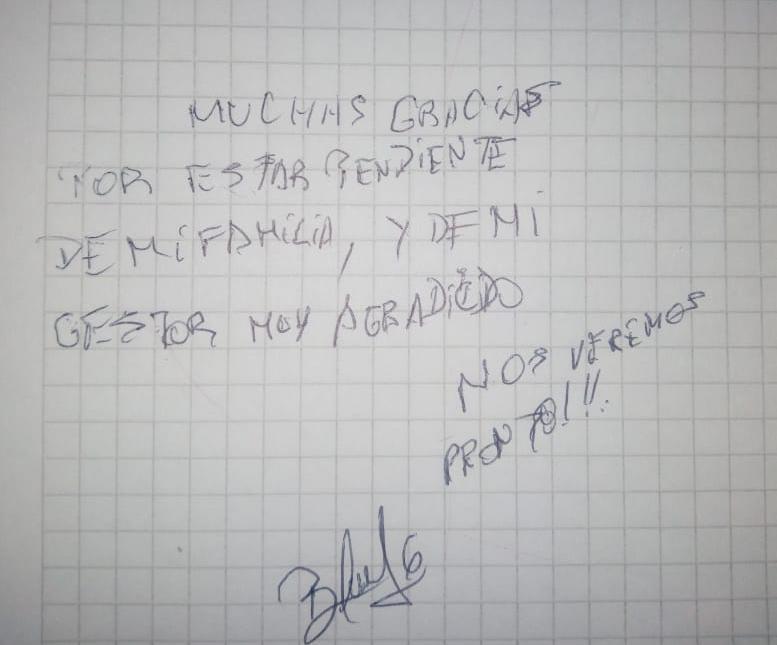 MUCHAS GRACIAS
POR ESTAR PENDIENTE
DE MI FAMILIA, Y DE MI
GESTOR MUY AGRADIEDO
NOS VEREMOS
PRONTO!!!